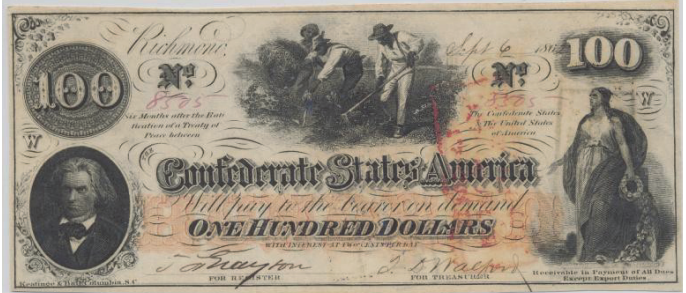 Richmond, Sept 6 186
100
100
No
No
8505
8505
Six Months after the Rati
fication of a Treaty of
Peace between
The Confederate States
& The United States
of America
THE
Confederate States America
Will pay to the bearer on demand
ONE HUNDRED DOLLARS
WITH INTEREST AT TWO CENTS PER DAY
FOR REGISTER
FOR TREASURER
Receivable in Payment of All Dues
Except Export Duties
Keatinge & Ball Columbia, S.C.